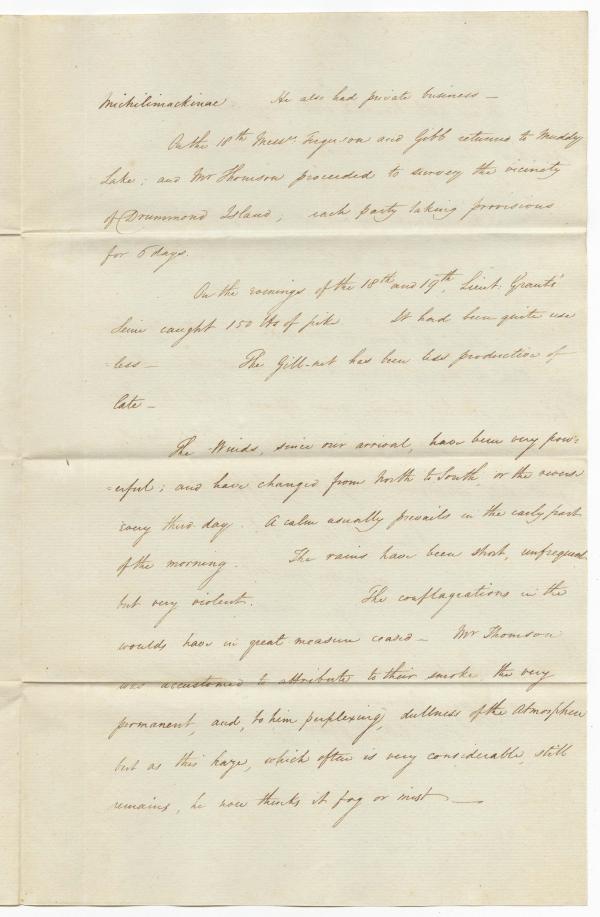 Michilimackinac   He also had private business —
On the 18th Messrs. Ferguson and Gibb returned to Muddy
Lake; and Mr Thomson proceeded to survey the vicinity
of Drummond Island; each party taking provisions
for 6 days.
On the evenings of the 18th and 19th, Lieut: Grants'
Seine caught 150 lbs of pike   It had been quite use
=less —   The Gill-net has been less production of
late —
The Winds, since our arrival, have been very pow=
=erful; and have changed from North to South, or the reverse
every third day.   A calm usually prevails in the early part
of the morning.   The rains have been short, unfrequent
but very violent.   The conflagrations in the
woulds have in great measure ceased —   Mr Thomson
was accustomed to attribute to their smoke the very
permanent, and, to him perplexing, dullness of the Atmosphere
but as this haze, which often is very considerable, still
remains, he now thinks it fog or mist —